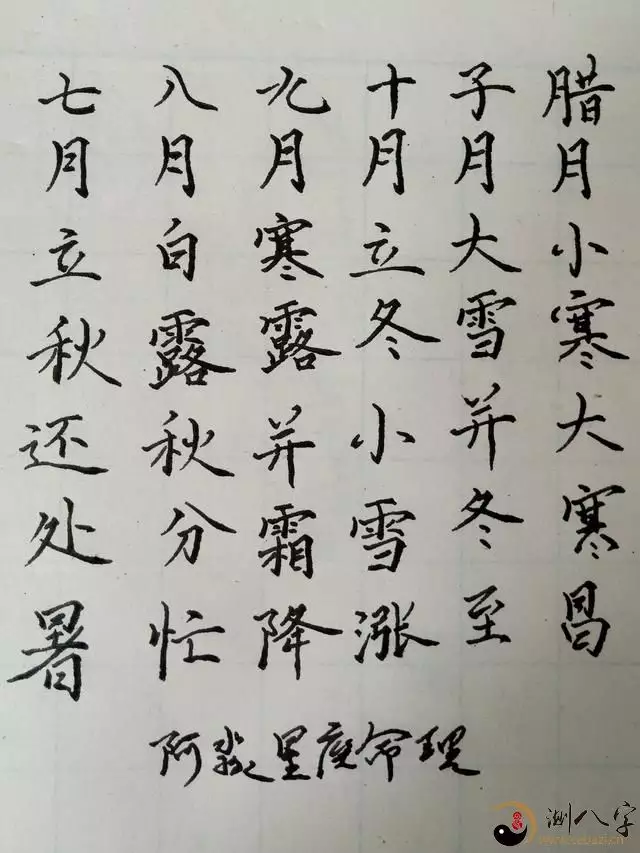 七月立秋还处暑
八月白露秋分忙
九月寒露并霜降
十月立冬小雪涨
子月大雪并冬至
腊月小寒大寒昌
阿淼星度命理
测八字